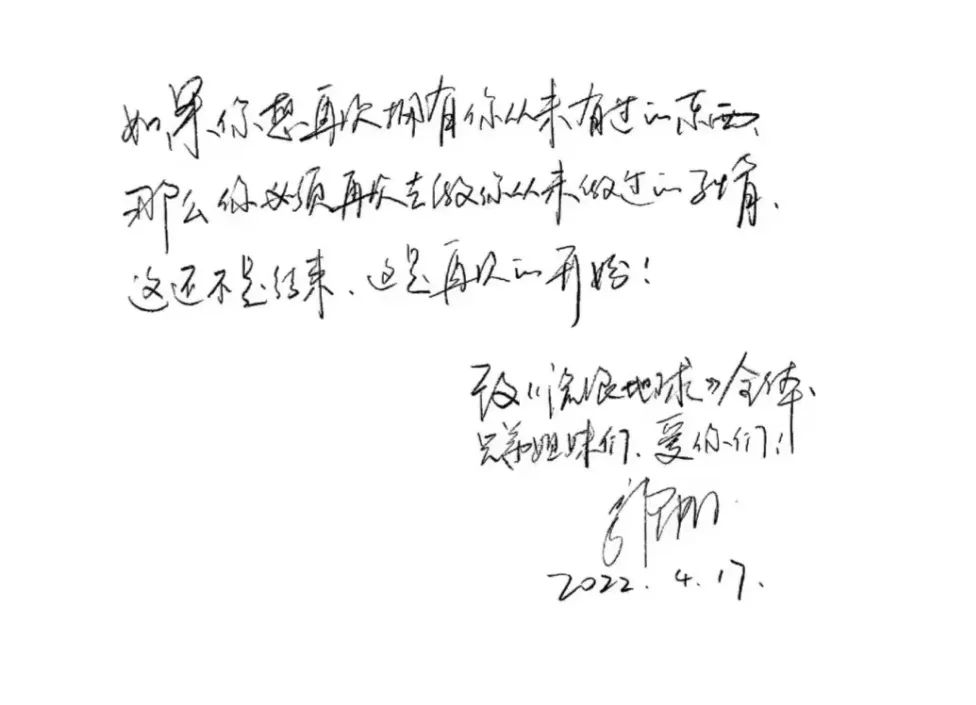 如果你想再次拥有你从来有过的东西、
那么你必须再次去做你从来做过的事情、
这还不是结束、这是再次的开始!
致《流浪地球》全体、
兄弟姐妹们、爱你们!
2022.4.17.